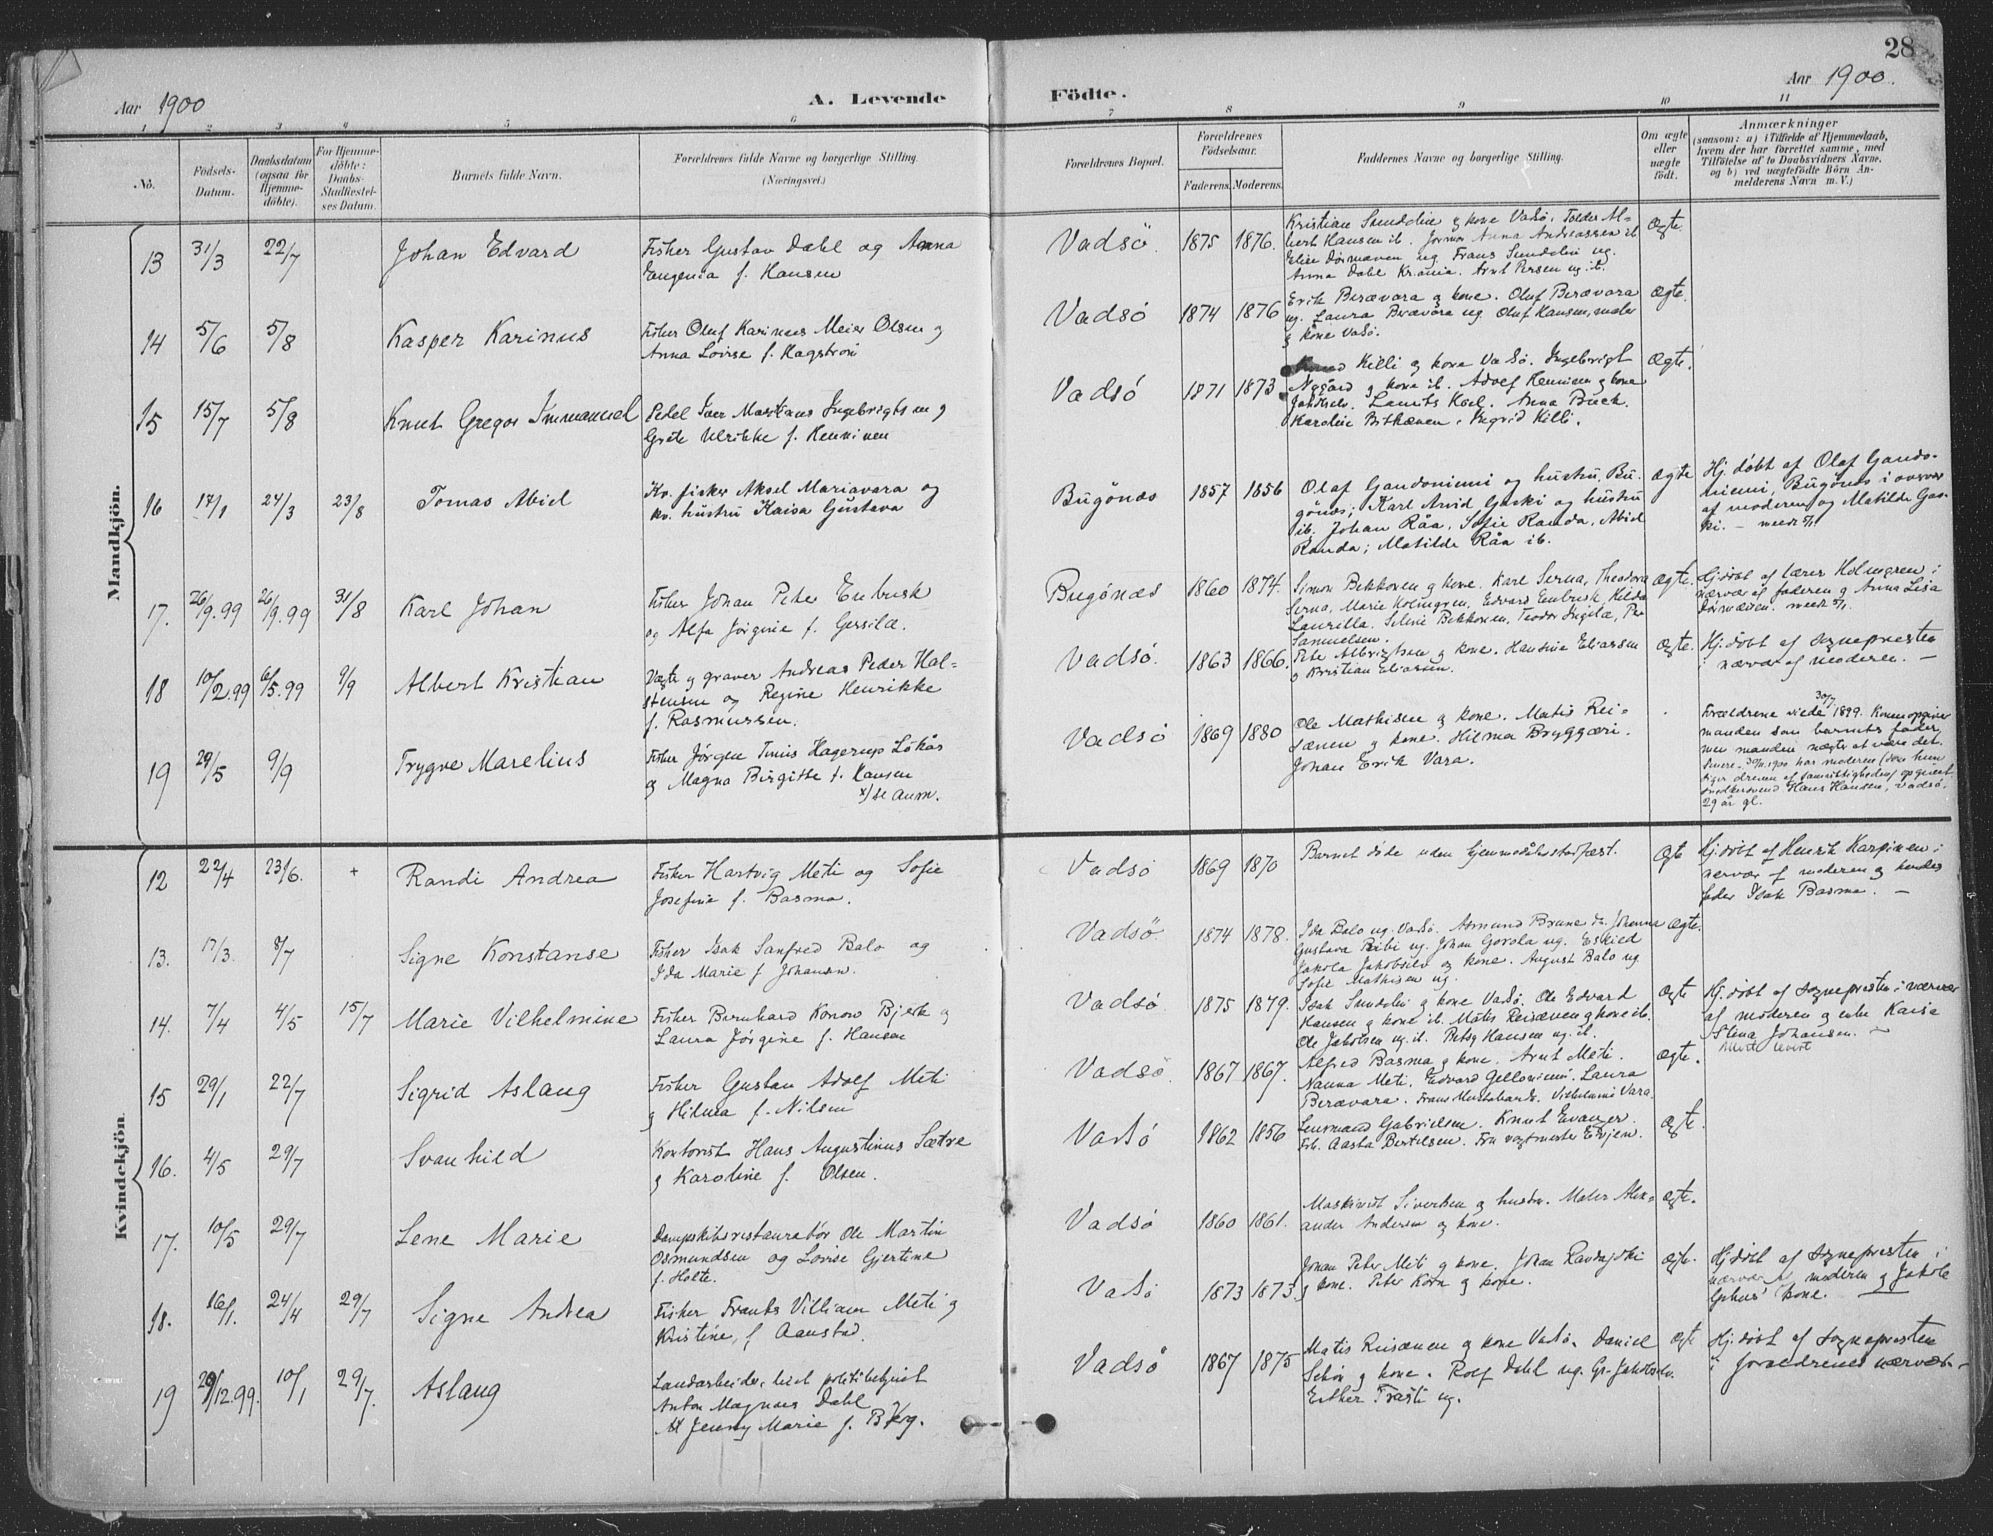 28
Aar 1900
A. Levende Födte.
Aar 1900.
1 2 3 4 5 6 7 8 9 10 11
No.
Födsels-
Datum.
Daabsdatum
(ogsaa for
Hjemme-
döbte).
For Hjemme-
döbte:
Daabs-
Stadfæstel-
ses Datum.
Barnets fulde Navn.
Forældrenes fulde Navne og borgerlige Stilling.
(Næringsvei.)
Forældrenes Bopæl.
Forældrenes
Födselsaar.
Faderens. Moderens.
Faddernes Navne og borgerlige Stilling.
Om ægte
eller
uægte
födt.
Anmærkninger
(saasom: a) i Tilfælde af Hjemmedaab,
hvem der har forrettet samme, med
Tilföielse af to Daabsvidners Navne,
og b) ved uægtefödte Börn An-
melderens Navn m. V.)
Mandkjön.
13 31/3 22/7 Johan Edvard
Fisker Gustav Dahl og Anna
Eugenia f. Hansen
Vadsö. 1875 1876.
Kristian Sundelin g kone Vadsö. Tolder Al-
bert Hansen ib. Anna Andreassen ib
Elise ug. Frans Sundelin ug.
Anna Dahl Arnt Persen ug. ib.
Ægte.
14 5/6 5/8 Kasper Karinus
Fisker Oluf Karinus Meier Olsen g
Anna Lovise f. Hagström
Vadsö 1874 1876
Erik Beravara g kone. Oluf Beravara
ug. Laura Beravara ug. Oluf Hansen, maler
g kone Vadsö.
Ægte.
15 15/7 5/8 Knut Gregor Immanuel
Pedel Iver Martinus Ingebrigtsen g
Grete Ulrikke f. Henninen
Vadsö 1871 1873
Killi g kone Vadsö. Ingebrigt
Nygård g kone ib. Adolf Henninen g kone
Jakobselv. Laurits Anna Buck.
Karoline Ingrid Killi.
Ægte.
16 17/1 24/3 23/8 Tomas Abiel
Kv. fisker Aksel Mariavara og
kv. hustru Kaisa Gustava
Bugönæs 1857 1856
Olaf Gandoniemi og hustru, Bu-
gönæs; Karl Arvid Gaski og hustru
ib. Johan Råa, Sofie Randa, Abiel
Randa; Matilde Råa ib.
Ægte
Hj. döbt af Olaf Gando-
niemi, Bugönes i overvær
af moderen og Matilde Gas-
ki. –
17. 26/9.99 26/9.99 31/8 Karl Johan
Fisker Johan Peter Enbusk
og Alfa Jörgine f. Gersilæ.
Bugönæs 1860 1874.
Simon Bekkonen g kone. Karl Serna, Theodora
Serna, Marie Holmgren, Edvard Enbusk, Hilda
Laurilla. Seline Bekkonen, Teodor Ingilæ, Per
Samuelsen.
Ægte.
Hj. döbt af lærer Holmgren i
nærvær af faderen g Anna Lisa
18 10/2.99 6/5.99 9/9 Albert Kristian
Vægter g graver Andreas Peder Hal-
stensen og Regine Henrikke
f. Rasmussen.
Vadsö. 1863 1866.
Peter Albrigtsen g kone. Hansine Eliassen
g Kristian Eliassen.
Ægte.
Hj. döbt af sognepresten
i nærvær af moderen. –
19 29/5 9/9 Trygve Marelius
Fisker Jörgen Tinis Hagerup Lökås
og Magna Birgitte f. Hansen
x) se anm.
Vadsö 1869 1880
Ole Mathisen g kone. Matis Rei-
sænen g kone. Hilma Bryggæri.
Johan Erik Vara.
Forældrene viede 30/7 1899. Konen opgiver
manden som barnets fader,
men manden nægter at være det.
Senere 1900 har moderen (som hun
siger dreven af samvittigheden) opgivet
Hans Hansen, Vadsö.
29 år gl.
Kvindekjön
12 22/4 23/6. + Randi Andrea
Fisker Hartvig Meti og Sofie
Josefine f. Basma.
Vadsö 1869 1870
Barnet döde uden hjemmedåbsstadfæst.
Ægte
Hj. döbt af Henrik Karpinen i
nærvær af moderen g hendes
fader Isak Basma. –
13. 17/3. 8/7 Signe Konstanse
Fisker Isak Sanfred Balo og
Ida Marie f Johansen.
Vadsö. 1874 1878.
Ida Balo ug. Vadsö. Asmund Brune Johanna
Gustava Peibi ug. Johan Gorola ug. Eskild
Jakola Jakobselv og kone. August Balo ug
Sofie Mathisen ug.
Ægte.
14. 7/4 4/5 15/7 Marie Vilhelmine
Fisker Bernhard Konow Bjerk g
Laura Jörgine f. Hansen
Vadsö 1875 1879.
Isak Sundelin g kone Vadsö. Ole Edvard
Hansen g kone ib. Matis Reisænen g kone ib.
Ole Jakobsen ug. ib. Betsy Hansen ug. ib.
Ægte
Hj. döbt af sognepresten i nærvær
af moderen g enke Kaisa
Stena Johansen. –
15 29/1 22/7 Sigrid Aslaug
Fisker Gustav Adolf Meti
g Hilma f. Nilsen
Vadsö. 1867 1867.
Alfred Basma g kone. Arnt Meti.
Nanna Meti. Edvard Laura
Beravara. Frans Vilhelmine Vara.
Ægte.
16. 4/5 29/7 Svanhild
Kontorist Hans Augustinus Sætre
g Karoline f. Olsen.
Vadsö 1862 1856
Lensmand Gabrielsen. Knut Evanger.
Frk. Aasta Bertelsen. Fru vagtmester Erjem.
Ægte.
17. 10/5 29/7 Lene Marie
Dampskibsrestauratör Ole Martin
Osmundsen og Lovise Gjertine
f. Holte.
Vadsö 1860 1861.
Maskinist Siversen g hustru. Maler Alex-
ander Andersen og kone.
Ægte.
18. 16/1. 24/4 29/7 Signe Andrea
Fisker Frants Villiam Meti g
Kristine, f Aanstad.
Vadsö 1873 1873.
Johan Peter Meti g kone. Johan
g kone. Peter Korn g kone.
Ægte.
Hj. döbt af sognepresten i
nærvær af moderen g Jakob
kone.
19 29/12.99. 10/1 29/7. Aslaug
Landarbeider, tidl politibetjent
Anton Magnus Dahl
Jenny Marie f. Berg.
Vadsö 1867 1875
Matis Reisænen g kone Vadsö. Daniel
Schön g kone. Rolf Dahl ug. Gr. Jakobselv.
Esther Trasti ug.
Ægte
Hj. döbt af sognepresten
i forældrenes nærvær. –